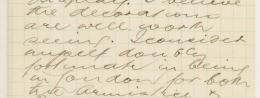 believe
the decorations
are well worth
seeing. I consider
myself doubly
fortunate in being
in London for both
the armistice &